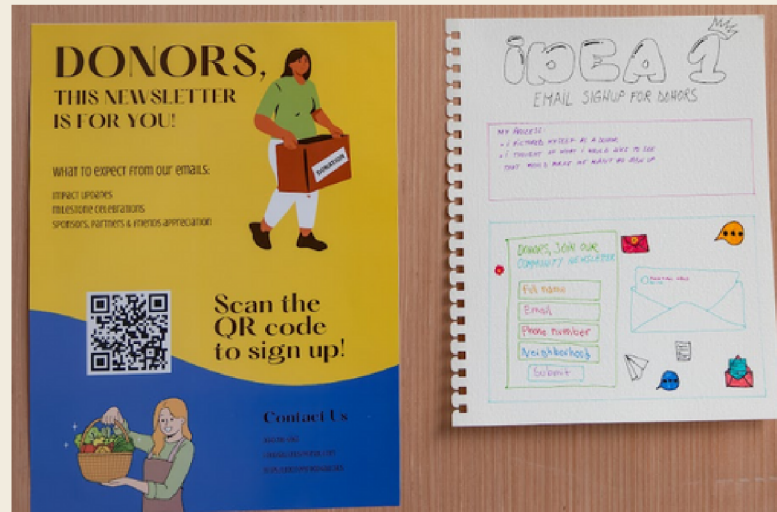 DONORS,
THIS NEWSLETTER
IS FOR YOU!
WHAT TO EXPECT FROM OUR EMAILS:
IMPACT UPDATES
MILESTONE CELEBRATIONS
SPONSORS, PARTNERS & FRIENDS APPRECIATION
DONATION
Scan the
QR code
to sign up!
Contact Us
iDEA 1
EMAIL SIGNUP FOR DONORS
MY PROCESS:
• I PICTURED MYSELF AS A DONOR
• I THOUGHT OF WHAT I WOULD LIKE TO SEE
THAT WOULD MAKE ME WANT TO SIGN UP
DONORS, JOIN OUR
COMMUNITY NEWSLETTER
Full name
Email
Phone number
Neighborhood
Submit